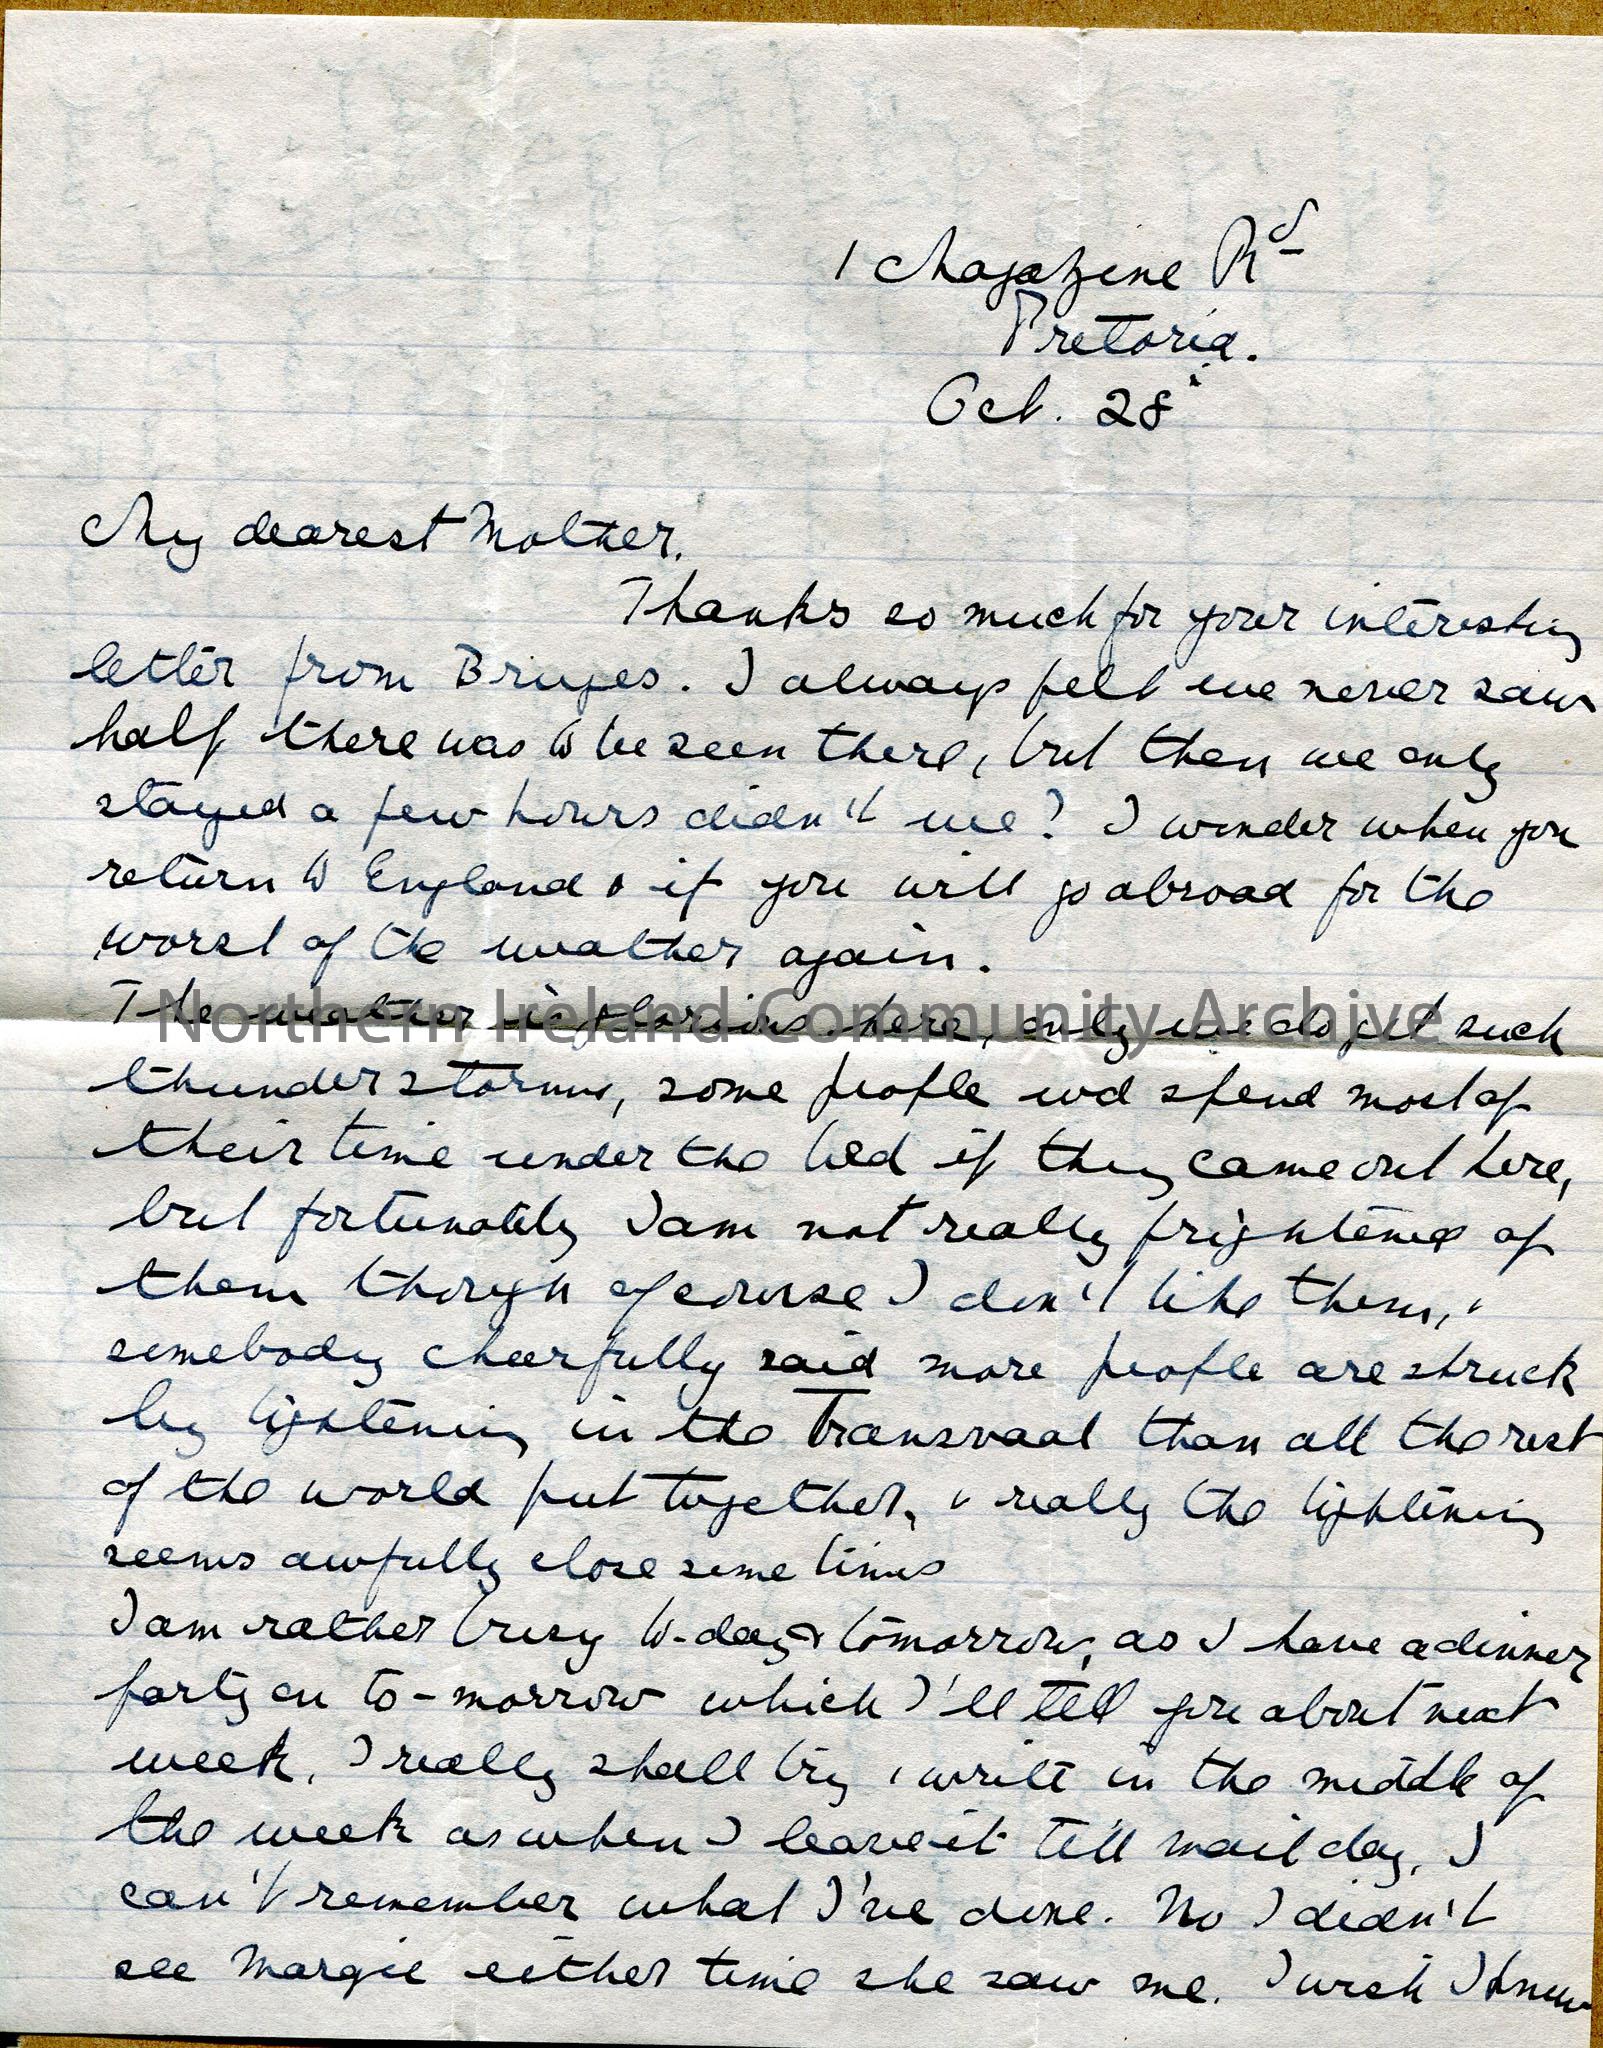 1 Magazine Rd
Pretoria.
Oct. 28
My dearest Mother.
Thanks so much for your interesting
letter from Bruges. I always felt we never saw
half there was to be seen there, but then we only
stayed a few hours didn't we? I wonder when you
return to England & if you will go abroad for the
worst of the weather again.
The weather is glorious here, only we do get such
Northern Ireland Community Archive
thunder storms, some people wd spend most of
their time under the bed if they came out here,
but fortunately I am not really frightened of
them though of course I don't like them, &
somebody cheerfully said more people are struck
by lightening in the Transvaal than all the rest
of the world put together, & really the lightening
seems awfully close some times
I am rather busy to-day & tomorrow, as I have a dinner
party on to-morrow which I'll tell you about next
week. I really shall try & write in the middle of
the week as when I leave it till mail day, I
can't remember what I've done. No I didn't
see Margie either time she saw me. I wish I knew